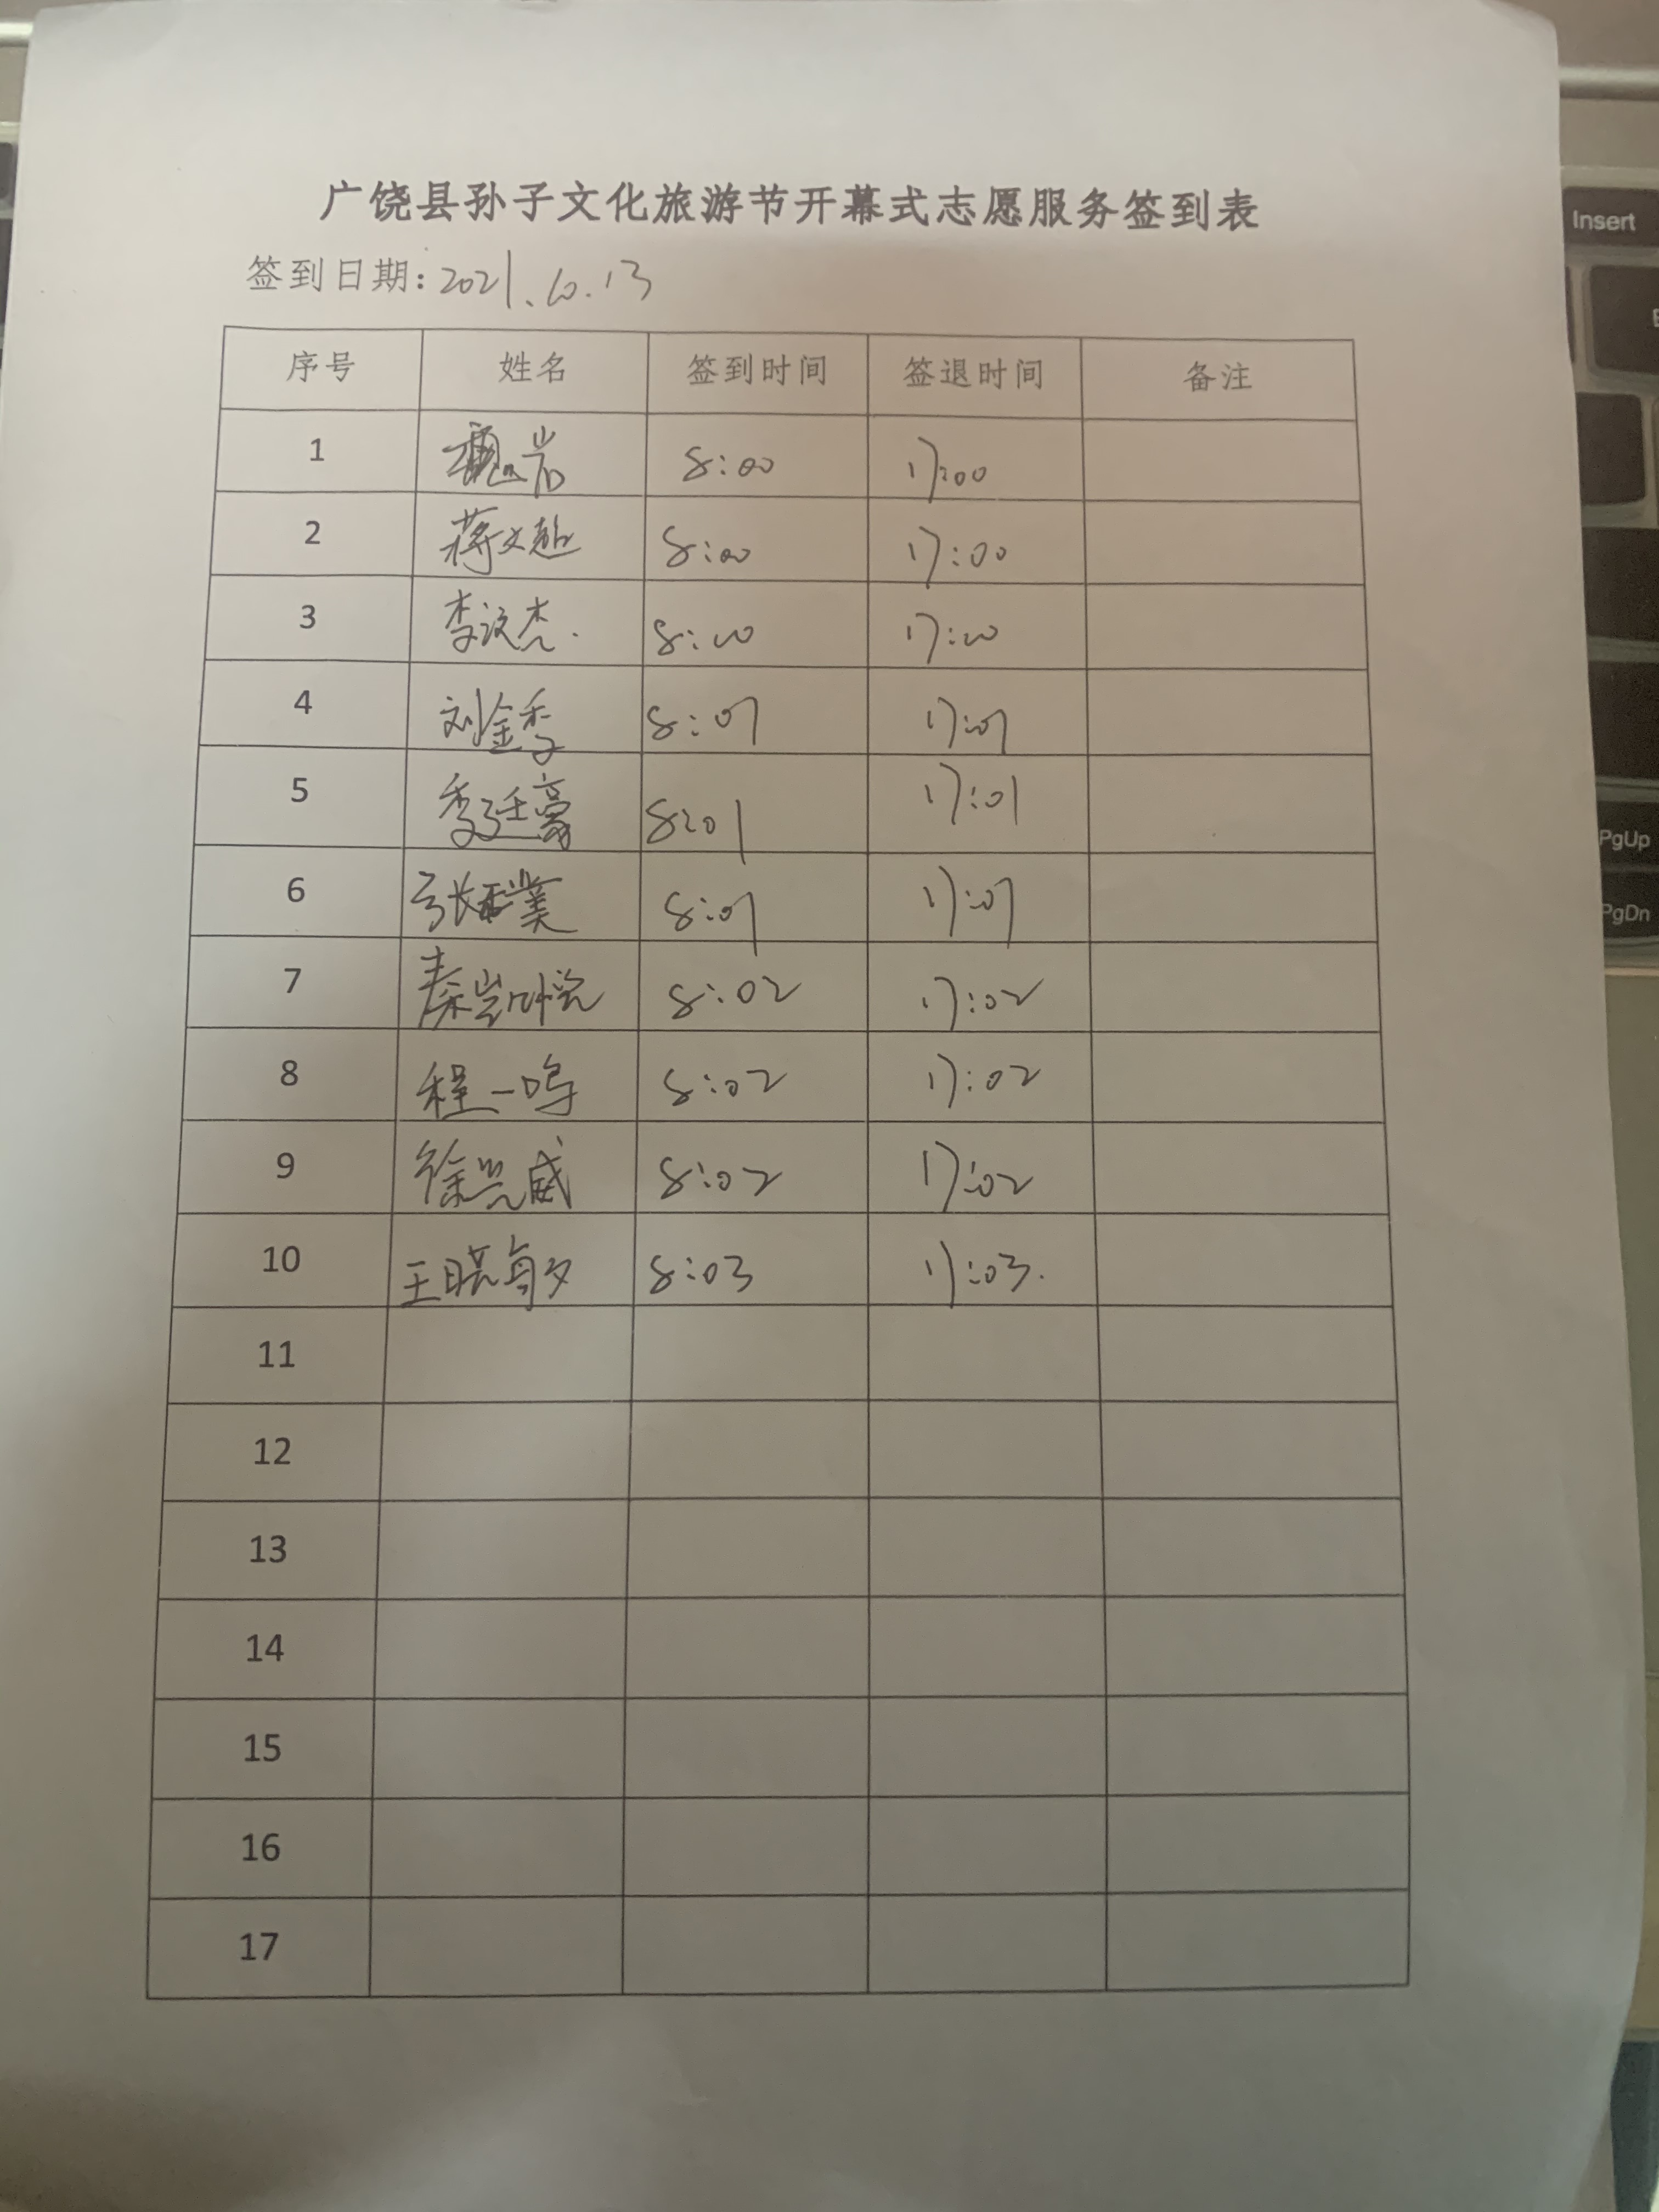 广饶县孙子文化旅游节开幕式志愿服务签到表
签到日期：2021.10.13
序号 姓名 签到时间 签退时间 备注
1 魏岩 8:00 17:00
2 蒋文超 8:00 17:00
3 李汶杰 8:00 17:00
4 刘金季 8:01 17:01
5 季廷豪 8:01 17:01
6 张 8:01 17:01
7 秦岂凡悦 8:02 17:02
8 程一鸣 8:02 17:02
9 徐兴威 8:02 17:02
10 王晓 8:03 17:03.
11
12
13
14
15
16
17
Insert
PgUp
PgDn